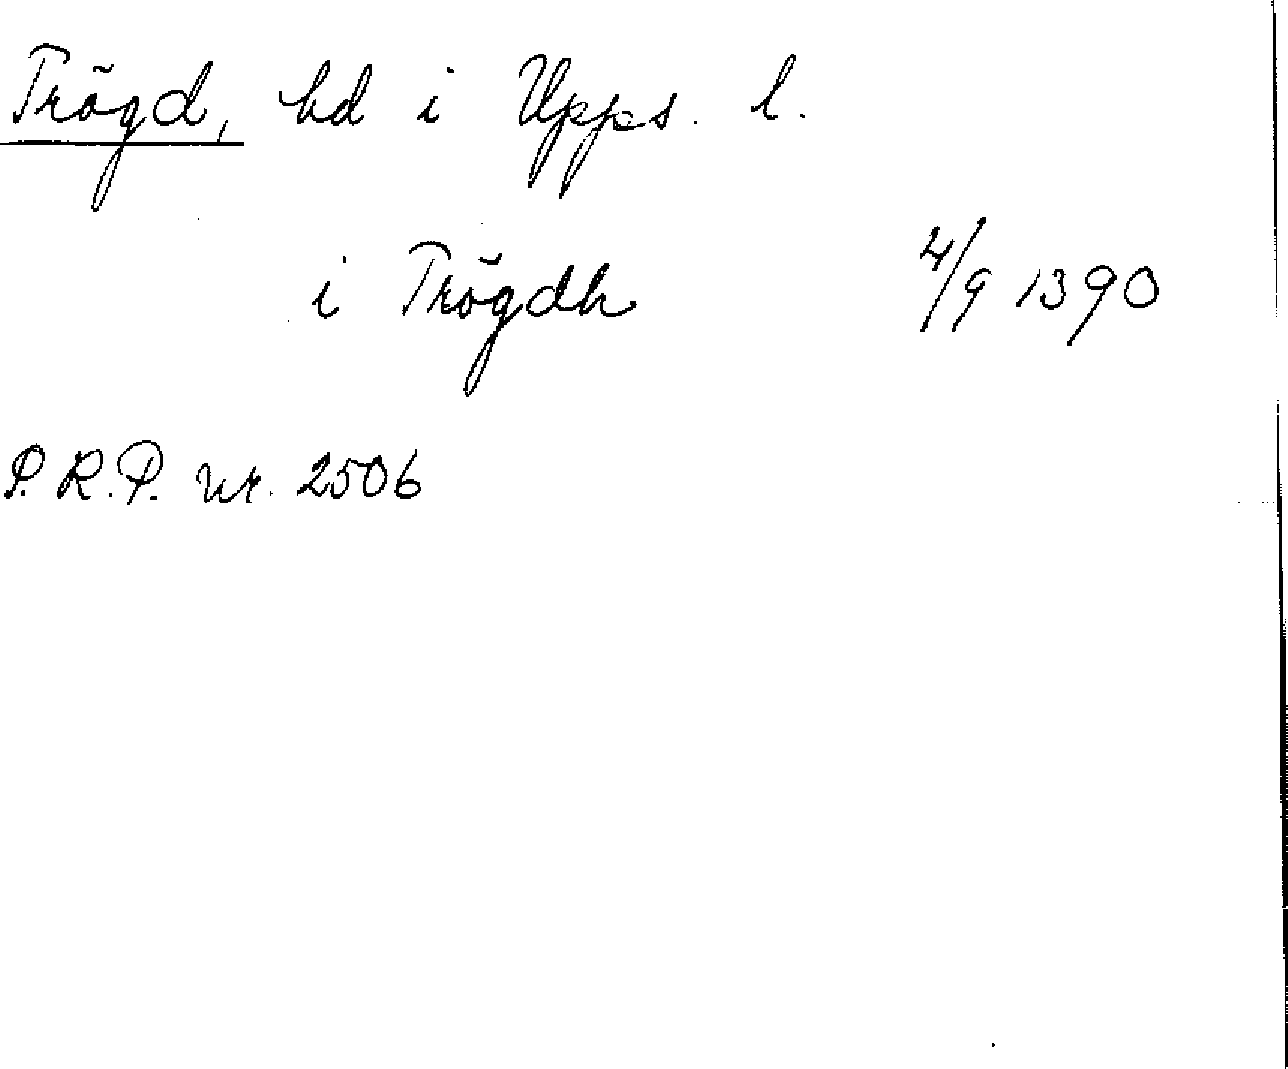 Trögd, hd i Upps. l.
i Trögdh 4/9 1390
P.R.P. nr. 2506